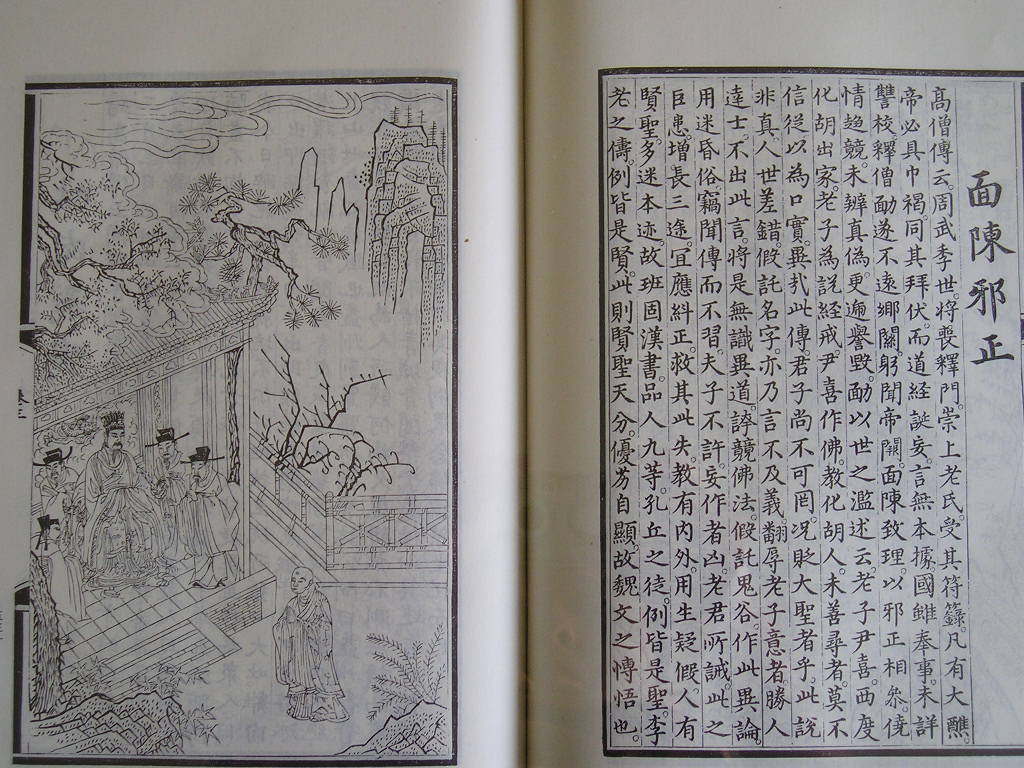 面陳邪正
高僧傳云。周武季世。將喪釋門。崇上老氏。受其符籙。凡有大醮。
帝必具巾褐。同其拜伏。而道經誕妄。言無本據。國雖奉事。未詳
讐校。釋僧勔。遂不遠鄉關。躬聞帝闕。面陳致理。以邪正相叅。僥
情趨競。未辯真偽。更遍譽毀。勔以世之濫述云。老子尹喜。西度
化胡出家。老子為說經戒。尹喜作佛。教化胡人。未善尋者。莫不
信從。以為口實。異哉此傳。君子尚不可罔。况貶大聖者乎。此說
非真。人世差錯。假託名字。亦乃言不及義。翻辱老子。意者勝人
達士。不出此言。將是無識異道。誇競佛法。假託鬼谷。作此異論。
用迷昏俗。竊聞傳而不習。夫子不許。妄作者凶。老君所誡。此之
巨患。增長三途。宜應糾正。救其此失。教有內外。用生疑假。人有
賢聖。多迷本迹。故班固漢書。品人九等。孔丘之徒。例皆是聖。李
老之儔。例皆是賢。此則賢聖天分。優芳自顯。故魏文之慱悟也。
卷三